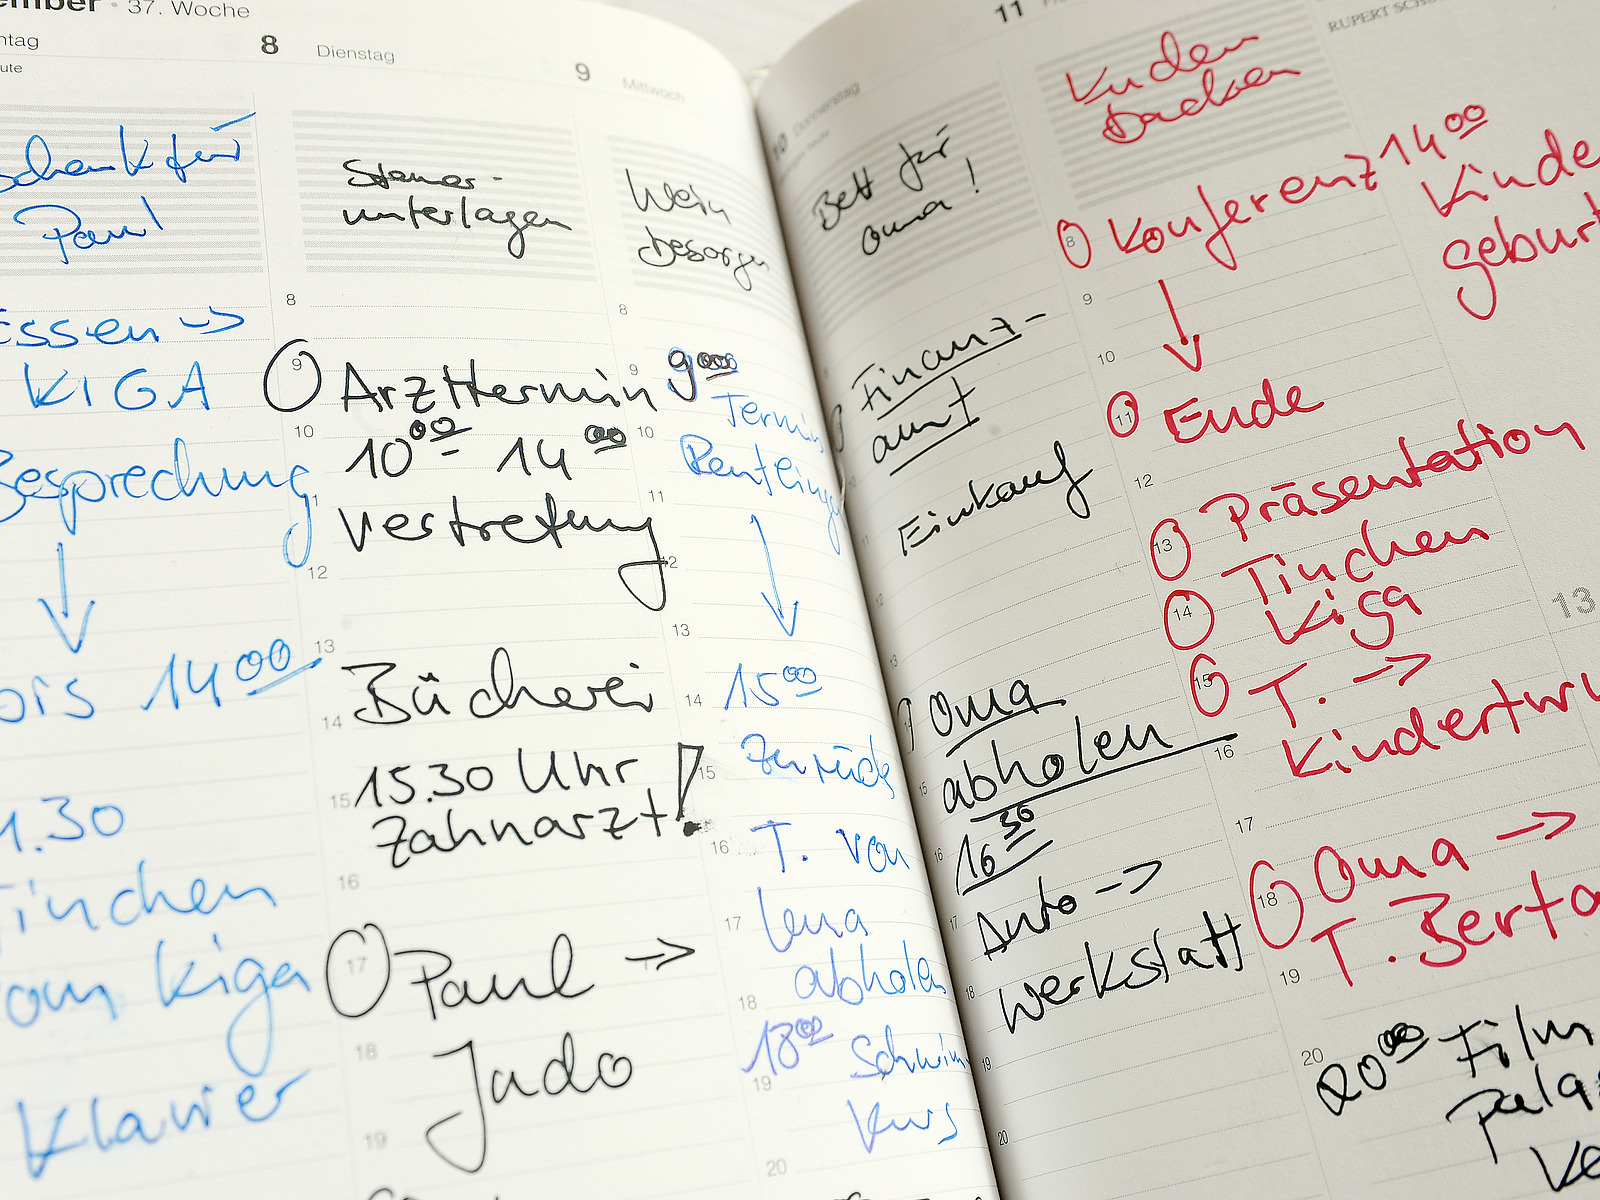 ember · 37. Woche
ntag
ute
schenk für
Paul
Essen →
KIGA
Besprechung
bis 14 00
1.30
Tinchen
vom Kiga
Klavier
8 Dienstag
Steuer-
unterlagen
8
9 Arzttermin
10
10 00 - 14 00
11
Vertretung
12
13
Bücherei
14
15.30 Uhr
15
Zahnarzt!
16
17 Paul →
18
Judo
19
9 Mittwoch
Wein
besorgen
8
9 9 00
Termin
10
11
12
13
14 15 00
zurück
15
16 T. von
17 Lena
abholen
18
18 00 Schwimm
19
Kurs
20
10 Donnerstag
Bett für
Oma!
Finanz-
amt
Einkauf
11
12
13
Oma
abholen
15
16 30
16
Auto →
17
Werkstatt
18
19
20
11
Kuchen
backen
8 Konferenz
9
10
11 Ende
12
13 Präsentation
Tinchen
14 Kiga
15 T. →
Kinderturn
16
17
18 Oma →
T. Berta
19
20
20 00 Film
palas
14 00
Kinde
geburt
13